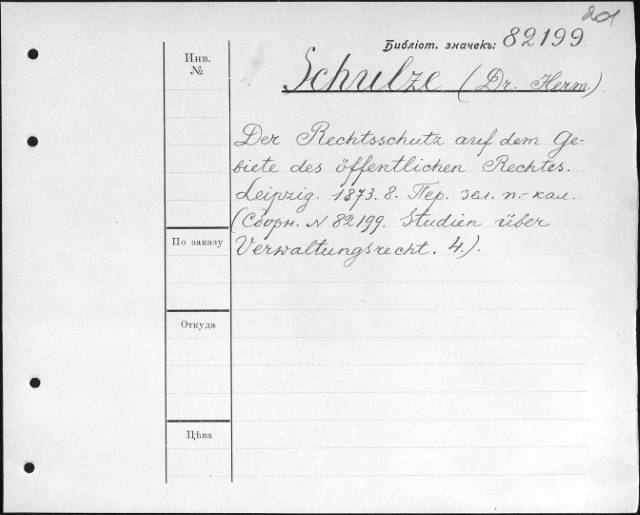 Библіот. значекъ: 82199
Инв.
№
Schulze (Dr. Herm.)
Der Rechtsschutz auf dem Ge-
biete des öffentlichen Rechtes.
Leipzig. 1873. 8. Пер. зел. п.-кал.
(Сборн. N 82199. Studien über
Verwaltungsrecht. 4.).
По заказу
Откуда
Цѣна